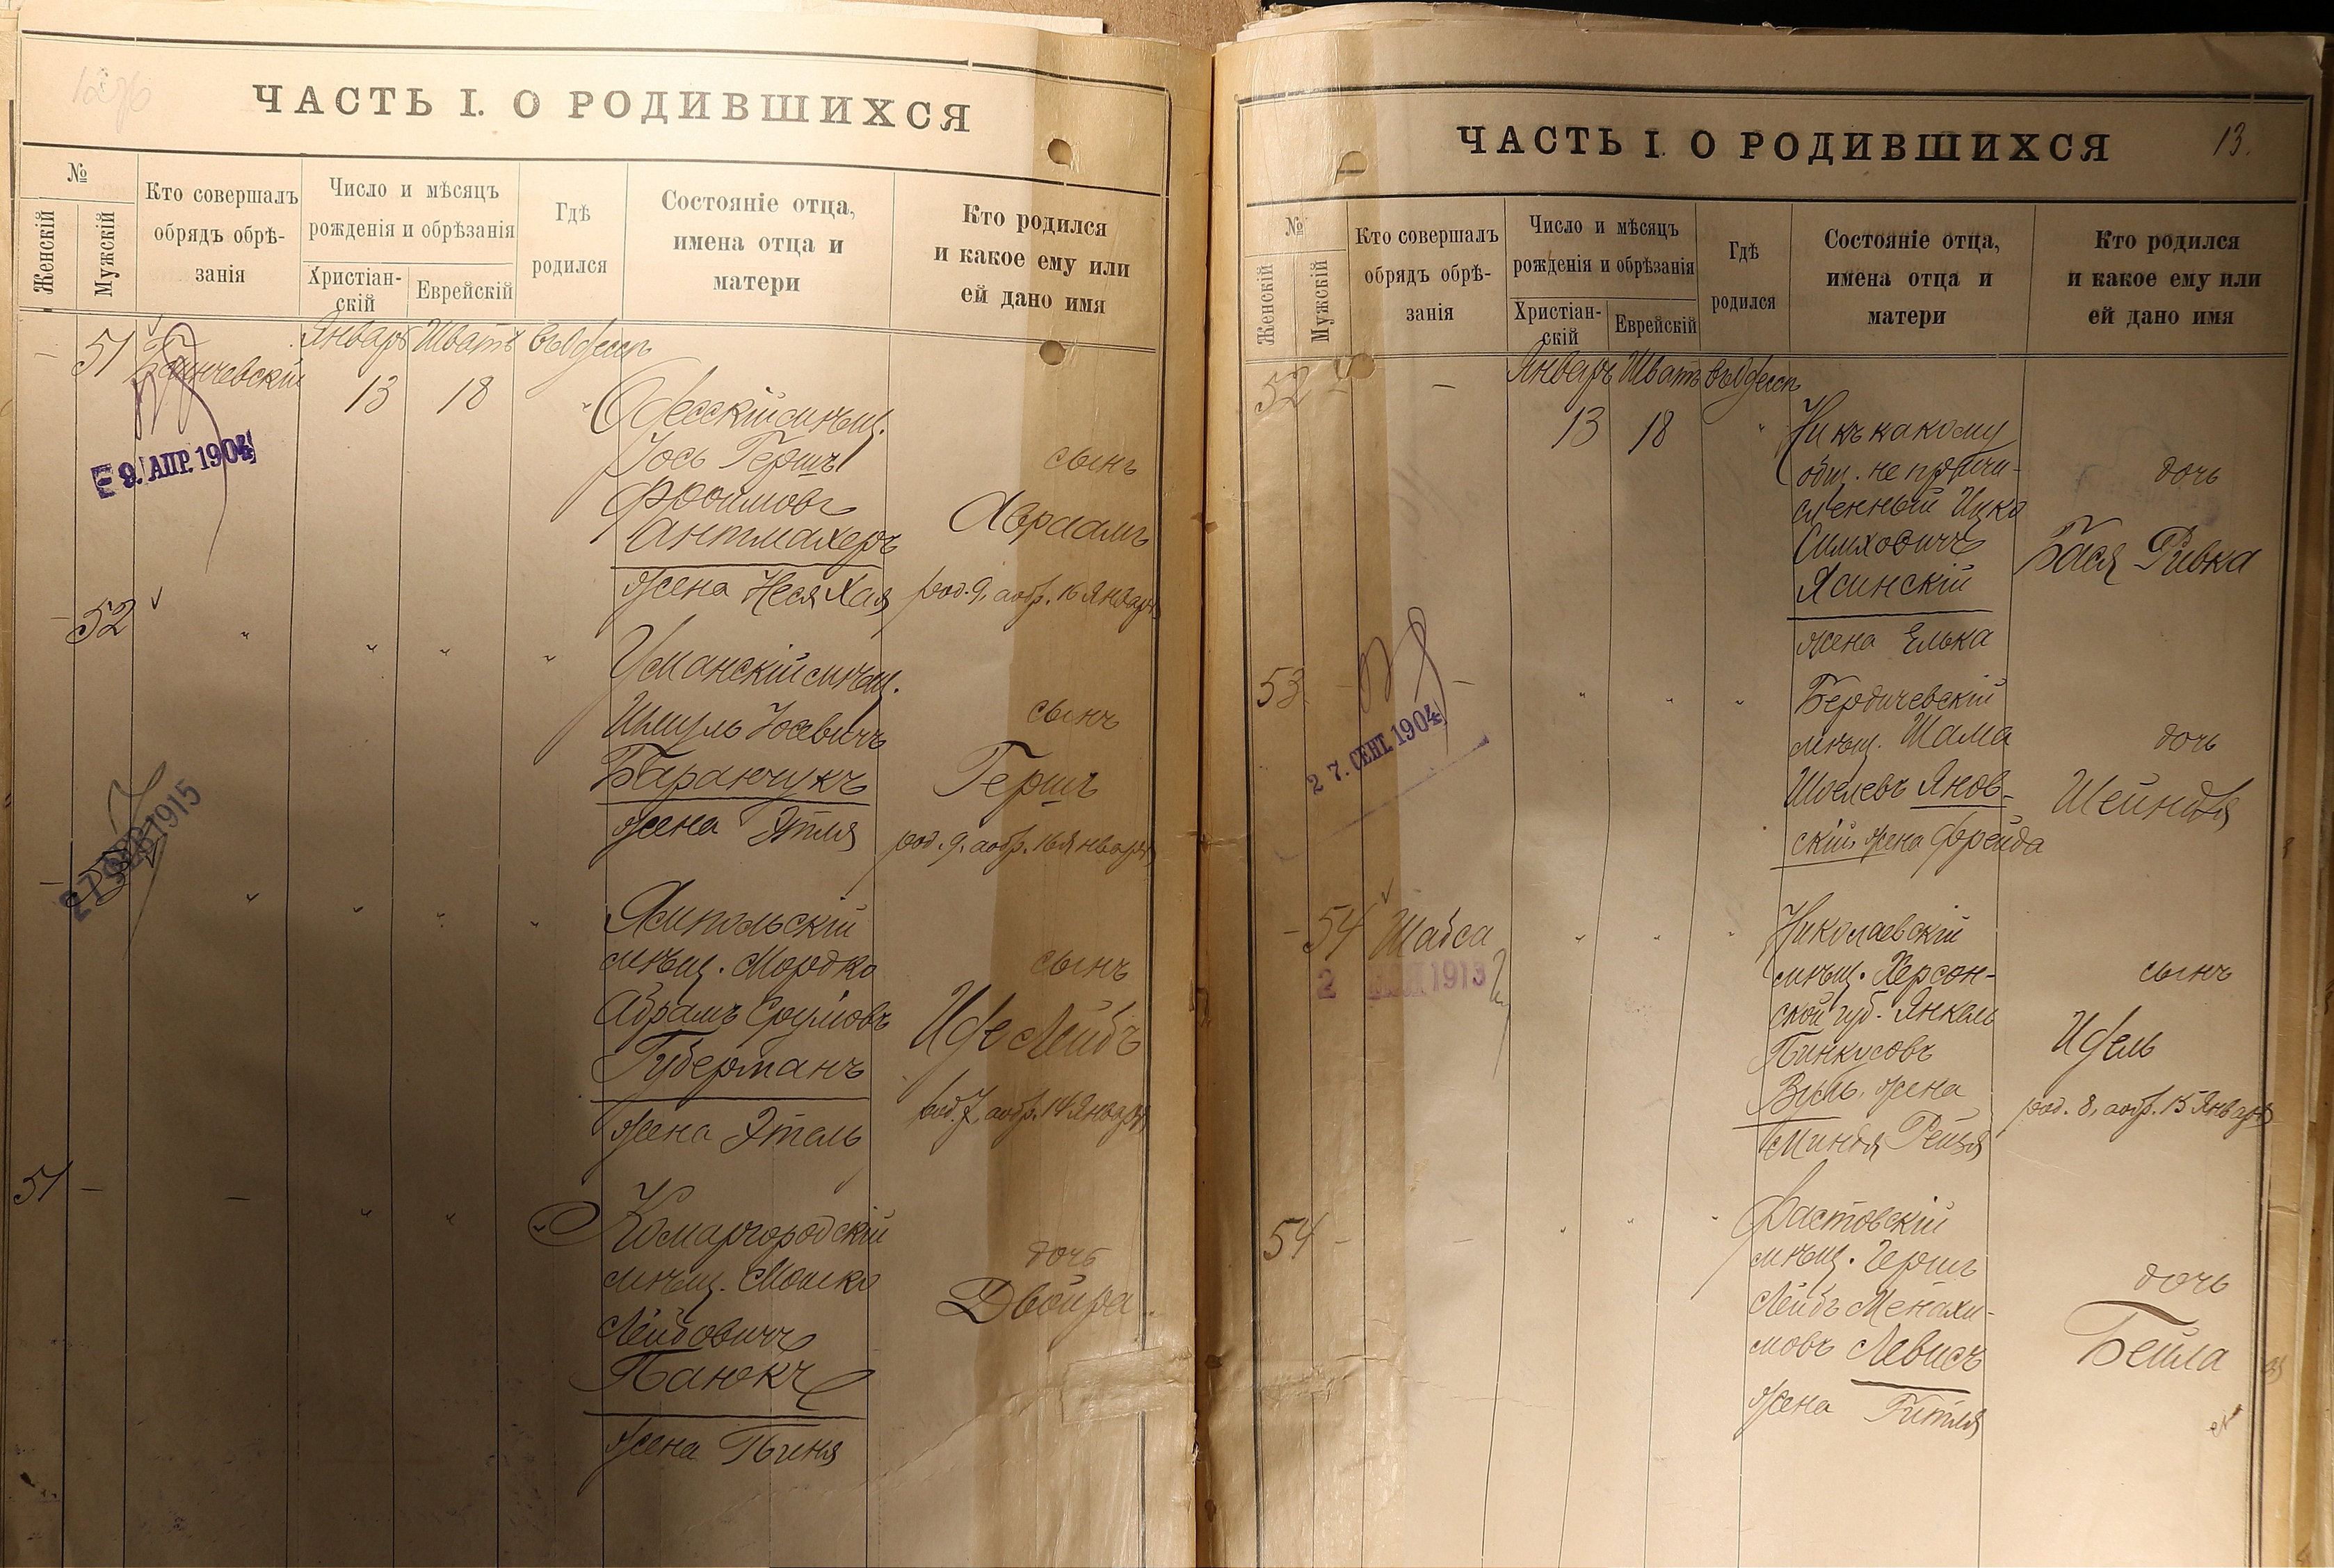 ЧАСТЬ I. О РОДИВШИХСЯ
№
Женскій
Мужскій
Кто совершалъ
обрядъ обрѣ-
занія
Число и мѣсяцъ
рожденія и обрѣзанія
Христіан-
скій
Еврейскій
Гдѣ
родился
Состояніе отца,
имена отца и
матери
Кто родился
и какое ему или
ей дано имя
Январь Шватъ въ Одессѣ
51
13 18
9. АПР. 1904
Одесскій мѣщ.
Іось Гершъ
Фроимовъ
Антмахеръ
жена Неся Хая
сынъ
Авраамъ
род. 9, а обр. 16 Января
52
Уманскій мѣщ.
Шмуль Іосевичъ
Баранчукъ
жена Этля
сынъ
Гершъ
род. 9, а обр. 16 Января
1915
Ямпольскій
мѣщ. Мордко
Абрамъ Сруловъ
Губерманъ
жена Этель
сынъ
Иде Лейбъ
род. 7, а обр. 14 Января
51
Комаргородскій
мѣщ. Мошко
Лейбовичъ
Панюкъ
жена
дочь
Двойра
ЧАСТЬ I. О РОДИВШИХСЯ
13.
№
Женскій
Мужскій
Кто совершалъ
обрядъ обрѣ-
занія
Число и мѣсяцъ
рожденія и обрѣзанія
Христіан-
скій
Еврейскій
Гдѣ
родился
Состояніе отца,
имена отца и
матери
Кто родился
и какое ему или
ей дано имя
Январь Шватъ въ Одессѣ
52
13 18
Ни къ какому
общ. не причи-
сленный Ицко
Симховичъ
Ясинскій
жена Елька
дочь
Бася Ривка
53
27. СЕНТ. 1904
Бердичевскій
мѣщ. Шама
Шоелевъ Янов-
скій жена Фрейда
дочь
Шейндля
54 Шабса
2 1913
Николаевскій
мѣщ. Херсон-
ской губ. Янкель
Пинкусовъ
жена
Миндя Рейзя
сынъ
Идель
род. 8, а обр. 15 Января
54
Фастовскій
мѣщ. Гершъ
Лейбъ Менахи-
мовъ Левисъ
жена Гитля
дочь
Бейла